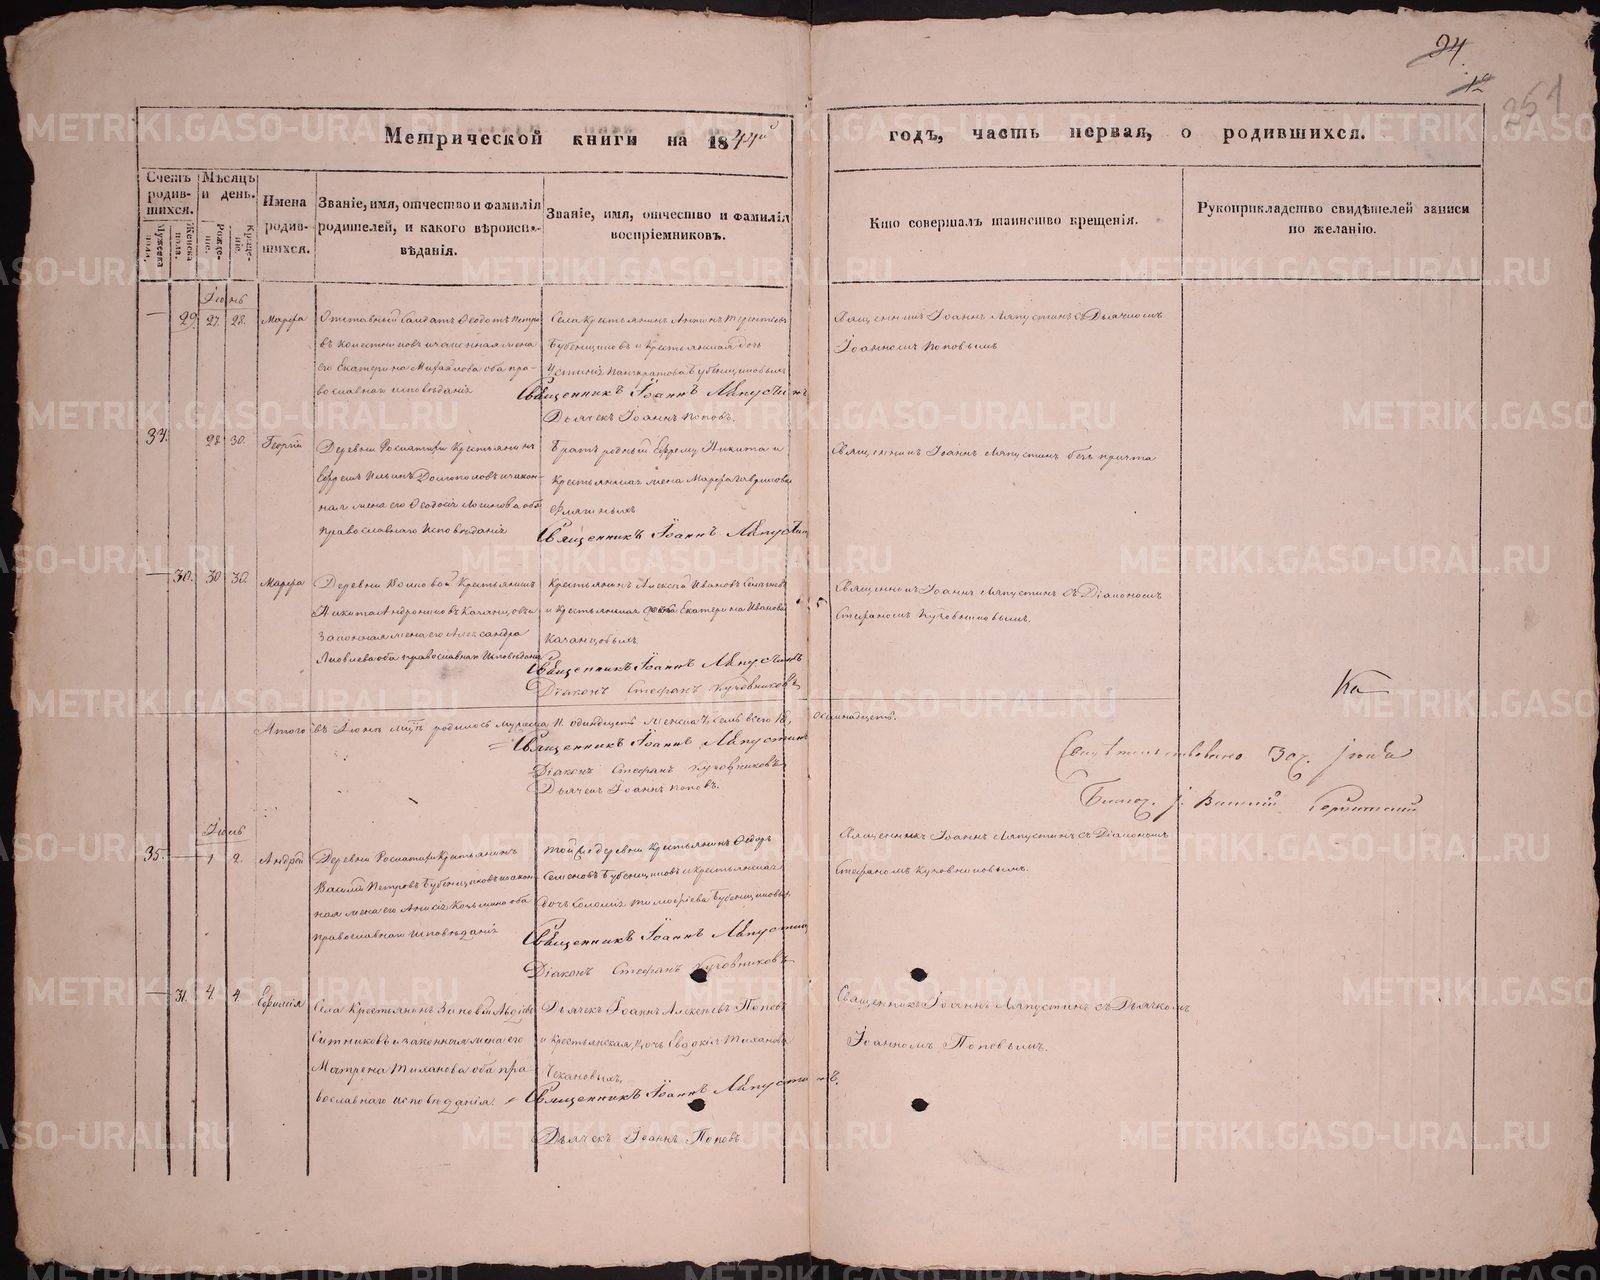 24.
12
251
Метрической книги на 1844й годъ, часть первая, о родившихся.
Счетъ родив-шихся.
Мужеска пола.
Женска пола.
Мѣсяцъ и день.
Рожде-ніе.
Креще-ніе.
Имена родив-шихся.
Званіе, имя, отчество и фамилія родителей, и какого вѣроиспо-вѣданія.
Званіе, имя, отчество и фамилія воспріемниковъ.
Кто совершалъ таинство крещенія.
Рукоприкладство свидѣтелей записи по желанію.
Іюнь
29. 27. 28. Марѳа
Отставный Солдатъ Ѳеодотъ Петро
въ и законная жена
его Екатерина Михайлова оба пра-
вославнаго исповѣданія
Села Крестьянинъ Антонъ Терентьевъ
Бубенщиковъ и Крестьянская дочь
Устинія Панкратова Бубенщиковыхъ
Священникъ Іоаннъ Ляпустинъ
Дьячекъ Іоаннъ Поповъ.
Священникъ Іоаннъ Ляпустинъ съ Дьячкомъ
Іоанномъ Поповымъ
34. 28. 30. Георгій
Деревни Крестьянинъ
Ефремъ Ильинъ Долгополовъ и закон-
ная жена его Ѳеодосія Логинова оба
Православнаго Исповѣданія
Братъ родный Ефрему Никита и
Крестьянская жена Марѳа Гаврилова
Священникъ Іоаннъ Ляпустинъ
Священникъ Іоаннъ Ляпустинъ безъ причта
30. 30 30. Марѳа
Деревни Крестьянинъ
Никита Андрониковъ Казанцовъ и
Законная жена его Александра
Яковлева оба православнаго Исповѣданія
Крестьянинъ Алексѣй Ивановъ
и Крестьянская Екатерина Иванова
Казанцовыхъ
Священникъ Іоаннъ Ляпустинъ
Діаконъ Стефанъ Кузовниковъ
Священникъ Іоаннъ Ляпустинъ съ Діакономъ
Стефаномъ Кузовниковымъ.
Итого въ Іюнѣ мцѣ родилось мужеска 11. одинадцеть женска 7. семь всего 18, осмнадцеть.
Священникъ Іоаннъ Ляпустинъ
Діаконъ Стефанъ Кузовниковъ
Дьячекъ Іоаннъ Поповъ.
Свидѣтельствовано 30ч. Іюня
Благоч. І. Василій
Іюль
35. 1. 2. Андрей
Деревни Крестьянинъ
Василій Петровъ Бубенщиковъ и закон
ная жена его Анисія Козьмина оба
Православнаго Исповѣданія
Той же деревни Крестьянинъ Ѳедоръ
Семеновъ Бубенщиковъ и крестьянская
дочь Соломія Тимофѣева Бубенщиковыхъ
Священникъ Іоаннъ Ляпустинъ
Діаконъ Стефанъ Кузовниковъ
Священникъ Іоаннъ Ляпустинъ съ Діакономъ
Стефаномъ Кузовниковымъ.
31. 4. 4 Ефимія
Села Крестьянинъ Зановій Авдѣевъ
Ситниковъ и законная жена его
Матрена Тиханова оба пра-
вославнаго исповѣданія.
Дьячекъ Іоаннъ Алексѣевъ Поповъ
и крестьянская дочь Евдокія Тиханова
Чекановыхъ
Священникъ Іоаннъ Ляпустинъ.
Дьячекъ Іоаннъ Поповъ
Священникъ Іоаннъ Ляпустинъ съ Дьячкомъ
Іоанномъ Поповымъ.
METRIKI.GASO-URAL.RU